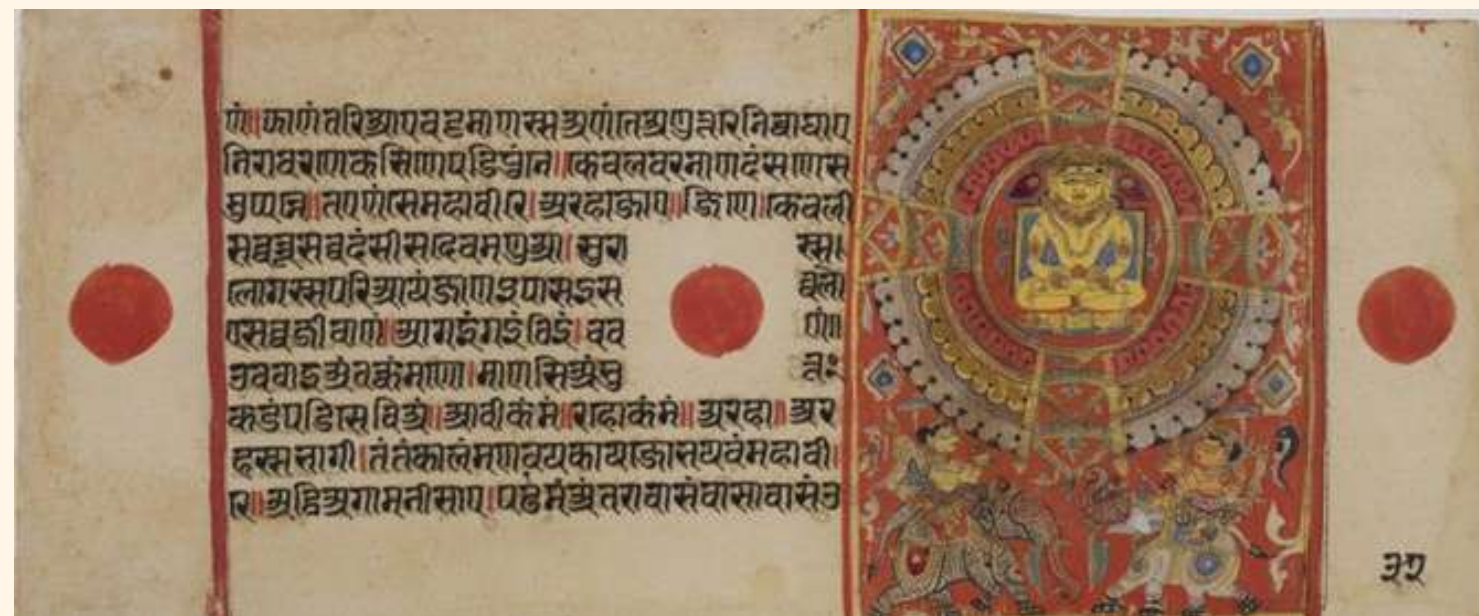 णं॥झाणंतरिआएवट्टमाणस्सअणंतेअणुत्तरेनिवाघाए
निरावरणेकसिणेपडिपुंने॥केवलवरनाणदंसणेस
मुप्पन्ने॥तएणंसेमहावीरे।अरहाजाए॥जिणे।केवली
सव्वन्नूसव्वदंसीसदेवमणुआ।सुरा स्स।
लोगस्सपरिआयंजाणइपासइस व्वलो
एसव्वजीवाणं॥आगइंगइंठिइं।चव णं॥
उववाइअंतक्कंमणो।माणसिअंभु त्तं
कडंपडिसेविअं॥आवीकंमं॥रहोकंमं॥अरहा॥अर
हस्सभागी।तंतंकालंमणवयकायजो
रे॥अट्ठिअगामनीसाए।पढमंअंतरावासंवासावासंउ
३२